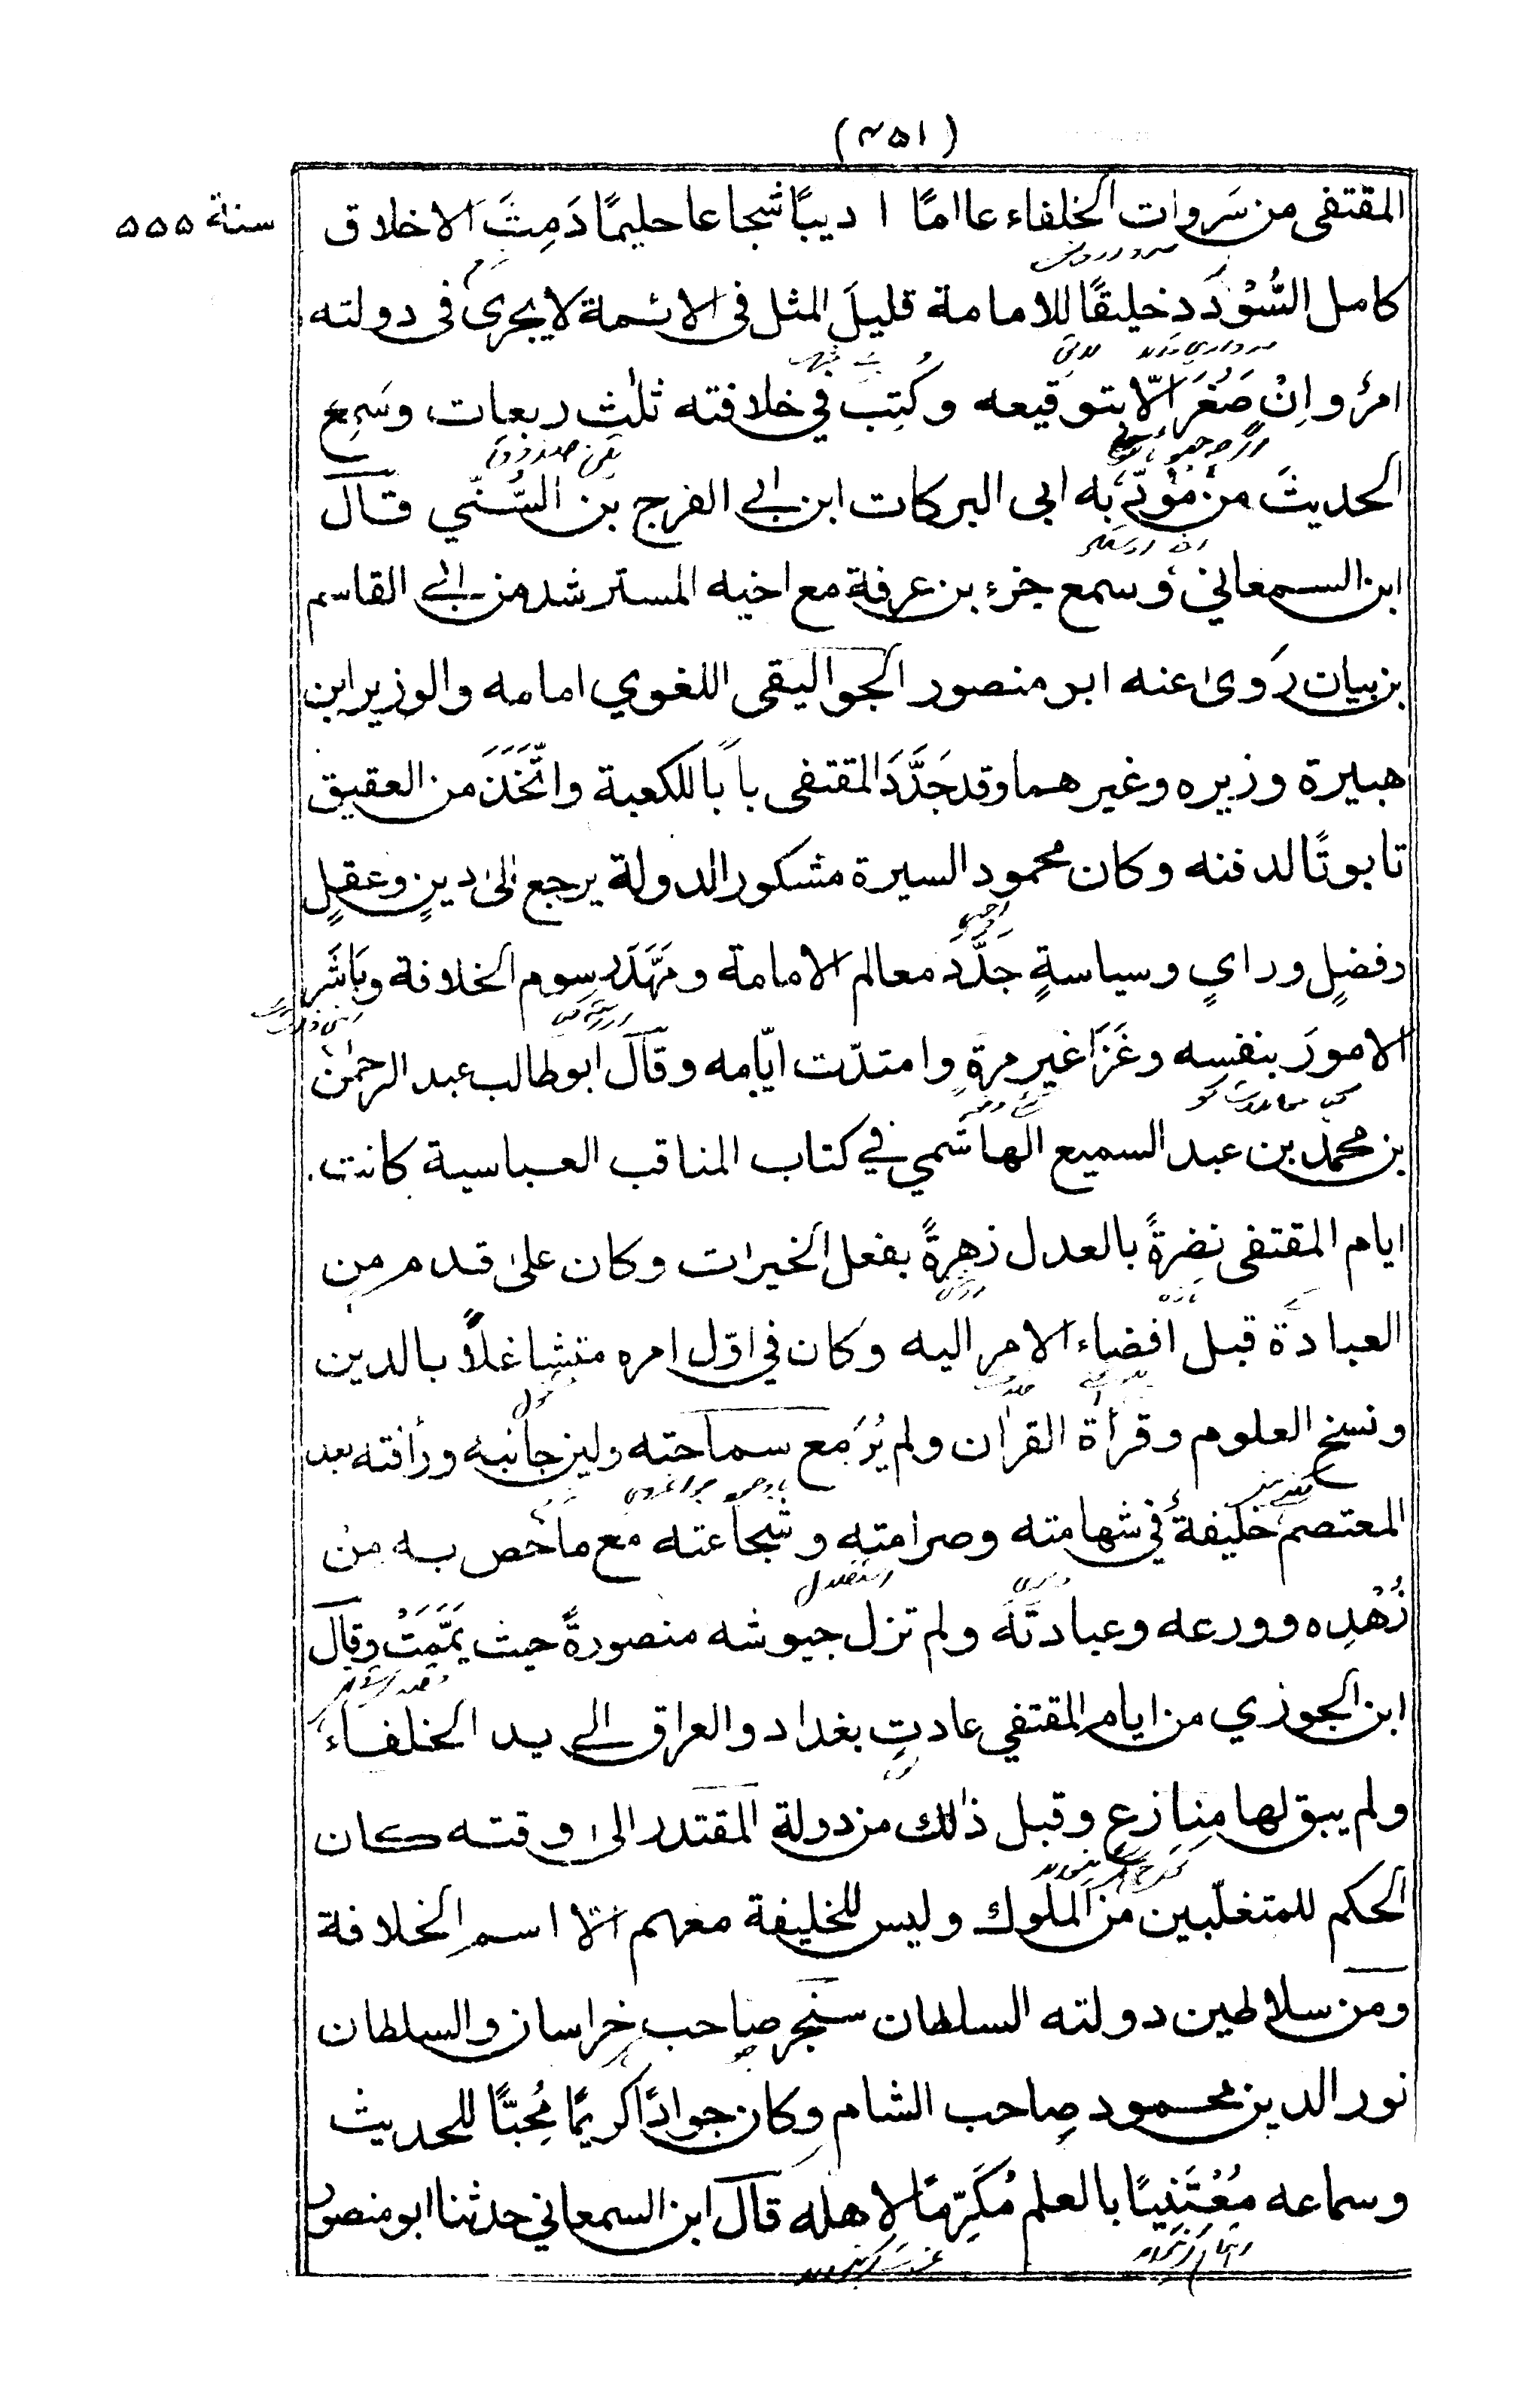 (۴۵۱)
سنة ۵۵۵
المقتفى من سَروات الخلفاء عاامًا ا ديبًا شجاعا حليمًا دَمِثَ الاخلاق
كامل السُّوْدَد خليقًا للامامة قليلَ المثل فى الائمة لا يجرى فى دولته
امرٌ و اِنْ صَغُرَ الّا بتوقيعه وكُتِبَ في خلافته ثلٰث ربعات وسَمِع
الحديثَ من مؤدّبه ابى البركات ابن ابي الفرج بن السُّنّي قال
ابن السمعاني وسمع جزء بن عرفة مع اخيه المسترشد من ابي القاسم
بن بيان رَوىٰ عنه ابو منصور الجواليقى اللغوي امامه والوزير ابن
هبيرة وزيره وغيرهما وقد جَدَّدَ المقتفى باباً للكعبة واتَّخَذَ من العقيق
تابوتًا لدفنه وكان محمود السيرة مشكور الدولة يرجع الىٰ دينٍ وعقلٍ
وفضلٍ ورايٍ وسياسةٍ جدَّدَ معالم الامامة ومَهَّدَ رسوم الخلافة وبَاشَر
الامورَ بنفسه وغَزَا غير مرةٍ وامتدّت ايّامه وقال ابوطالب عبد الرحمٰن
بن محمد بن عبد السميع الهاشمي في كتاب المناقب العباسية كانت
ايام المقتفى نضرةً بالعدل زهرةً بفعل الخيرات وكان علىٰ قدم من
العبادة قبل افضاء الامر اليه وكان في اوّل امره متشاغلاً بالدين
ونسخ العلوم وقرأة القرآن ولم يُرَ مع سماحته ولين جانبه ورأفته بعد
المعتصم خليفةٌ في شهامته وصرامته وشجاعته مع ما خص به من
زُهْدِه وورعه وعبادته ولم تزل جيوشه منصورةً حيث يَمَّمَتْ وقال
ابن الجوزي من ايام المقتفي عادت بغداد والعراق الى يد الخلفاء
ولم يبق لها منازع وقبل ذٰلك من دولة المقتدر الىٰ وقته كان
الحكم للمتغلّبين من الملوك وليس للخليفة معهم الّا اسم الخلافة
ومن سلاطين دولته السلطان سنجر صاحب خراسان والسلطان
نور الدين محمود صاحب الشام وكان جوادًا كريمًا مُحِبًّا للحديث
وسماعه مُعْتَنِيًا بالعلم مُكَرِّمًا لاهله قال ابن السمعاني حدثنا ابو منصور